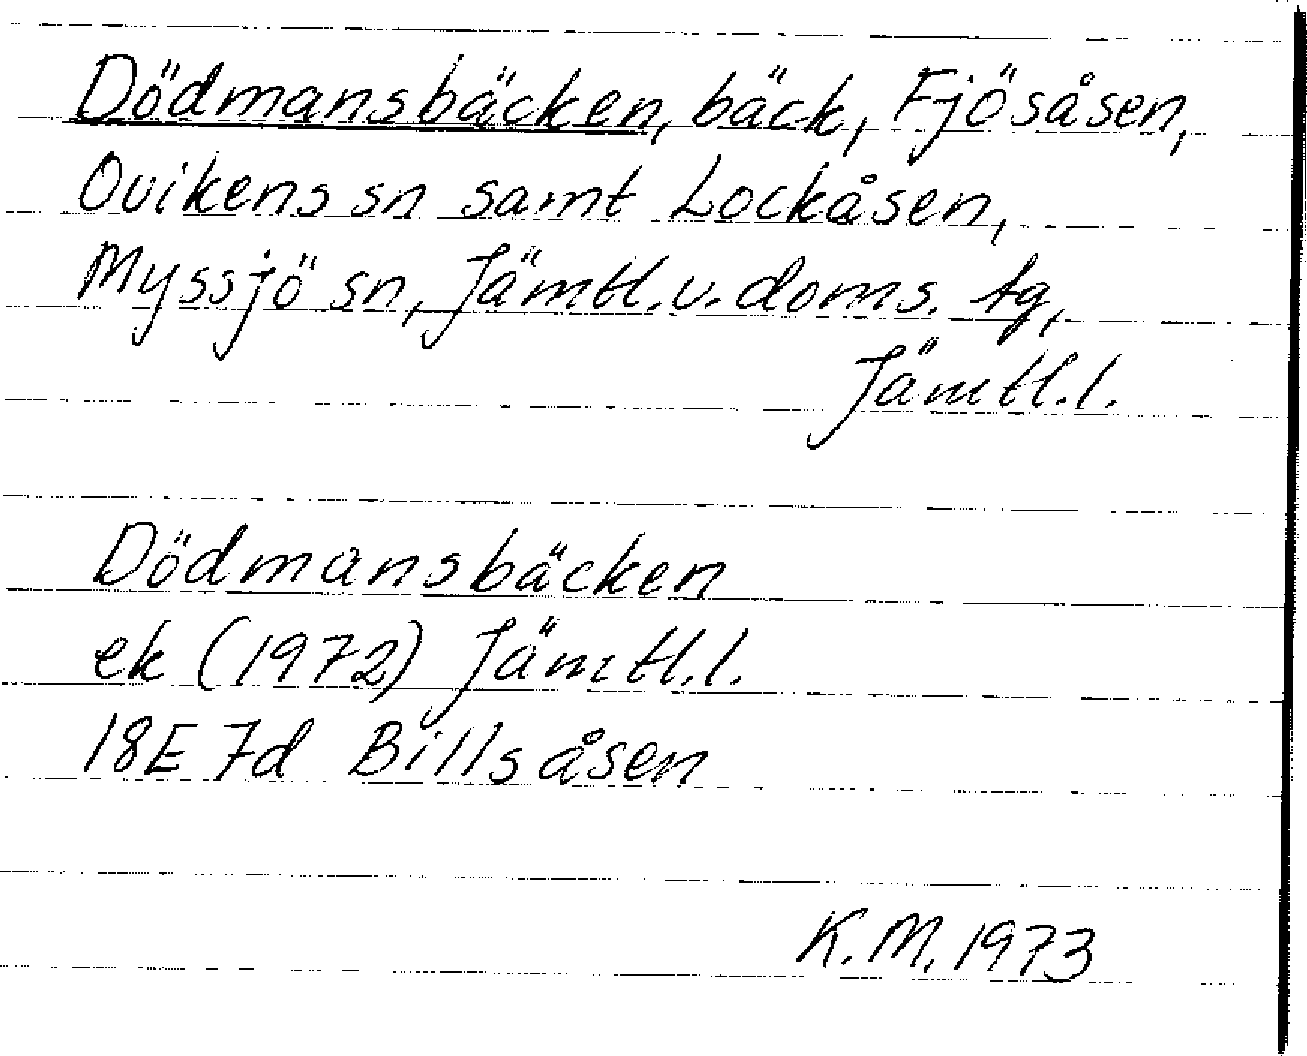 Dödmansbäcken, bäck, Fjösåsen,
Ovikens sn samt Lockåsen,
Myssjö sn, Jämtl. v. doms. tg,
Jämtl. l.
Dödmansbäcken
ek (1972) Jämtl. l.
18E 7d Billsåsen
K. M. 1973